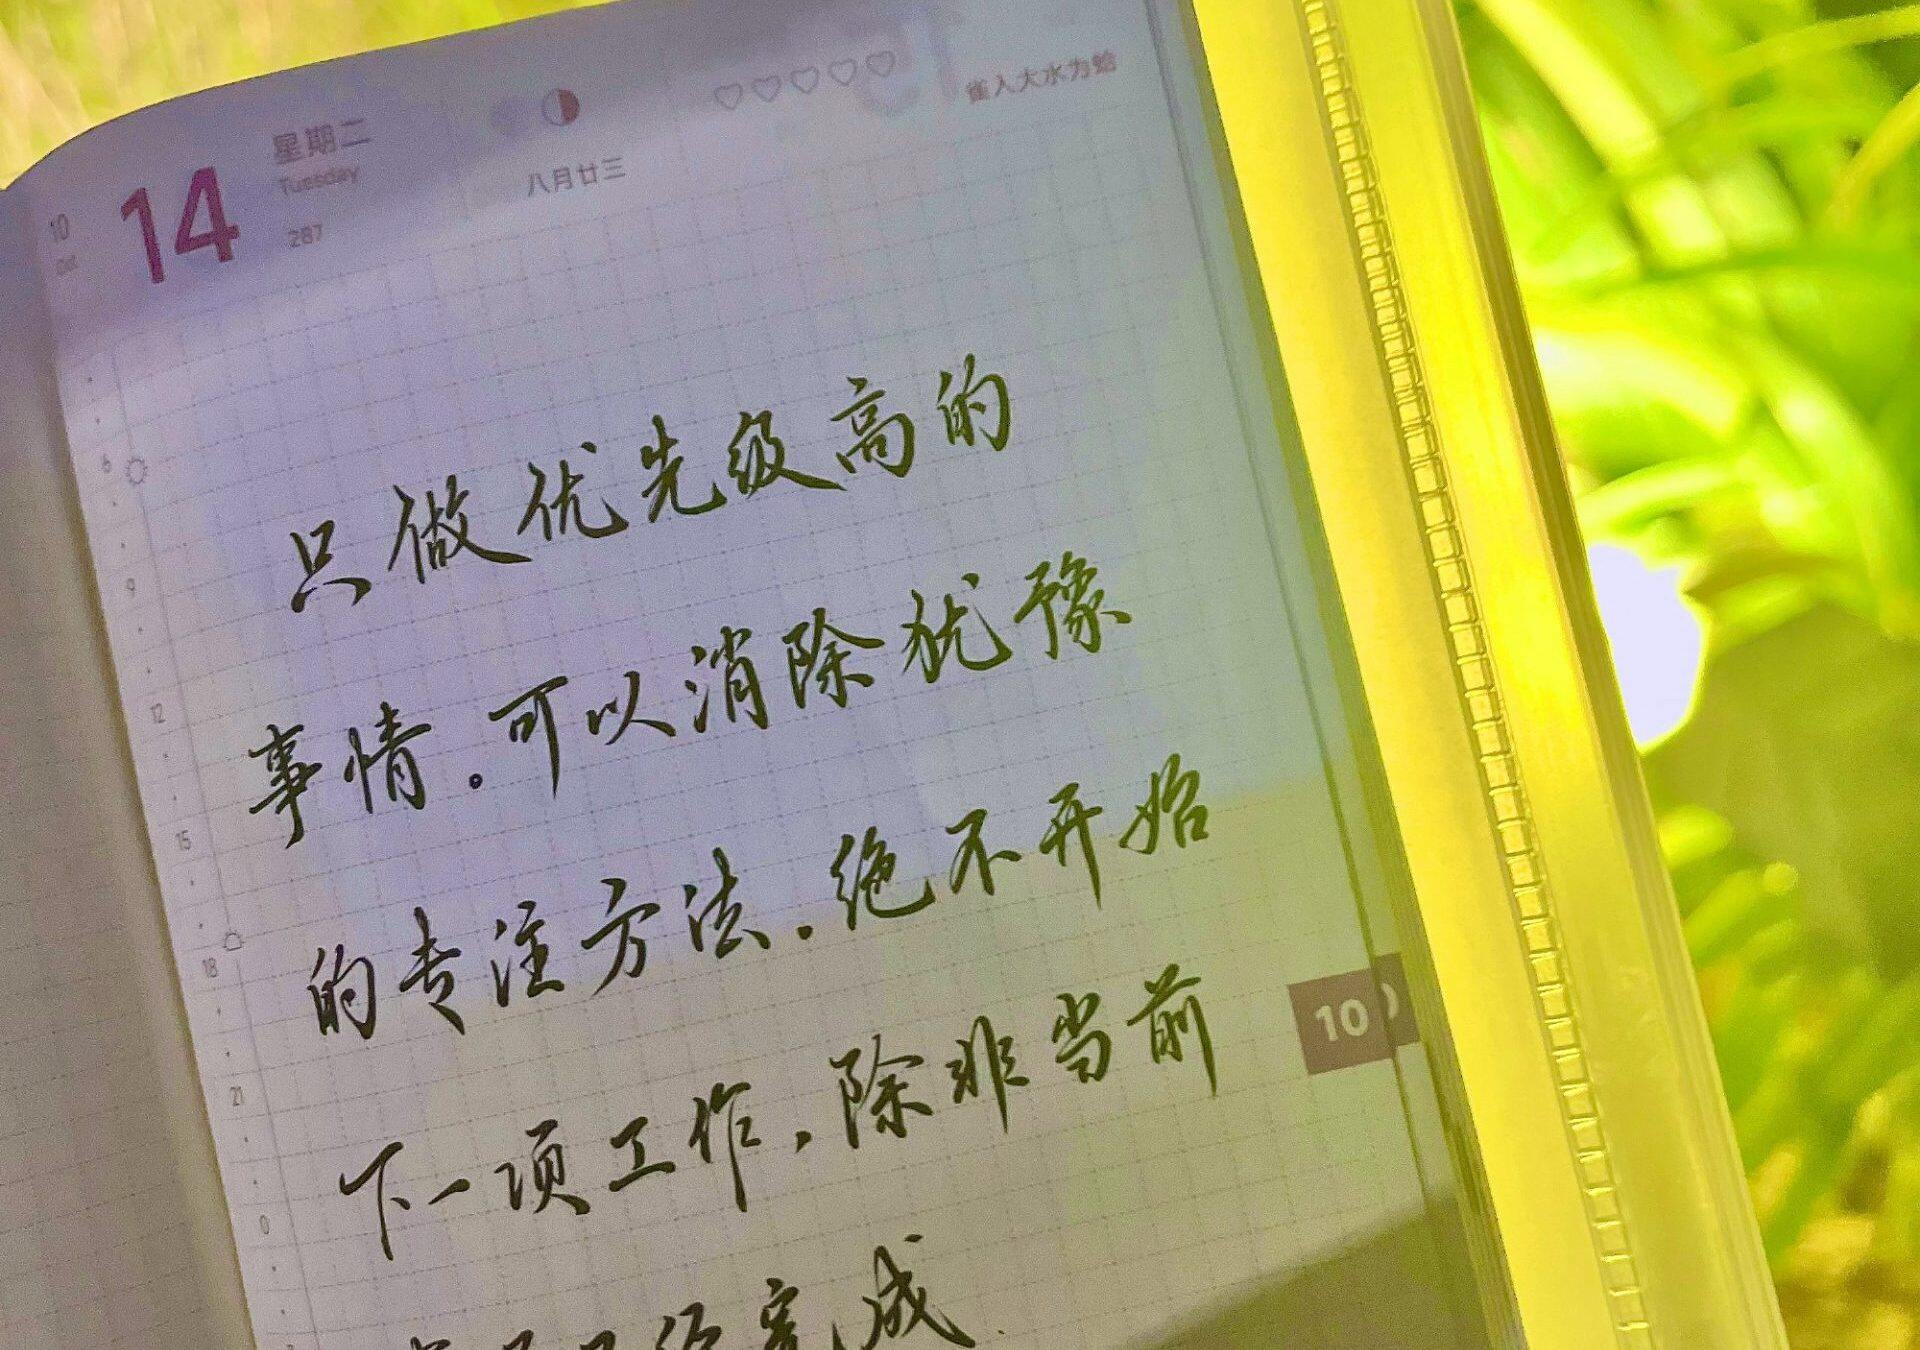 星期二
雀入大水为蛤
10
Oct
14
Tuesday
八月廿三
287
只做优先级高的
6
9
事情。可以消除犹豫
12
的专注方法.绝不开始
15
18
下一项工作,除非当前
10
21
0
完成.